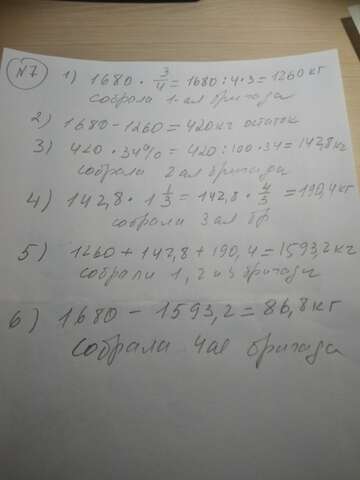 №7
1) 1680 · 3/4 = 1680:4·3=1260 кг
собрала 1-ая бригада
2) 1680-1260=420кг остаток
3) 420 · 34% = 420:100·34=142,8кг
собрала 2ая бригада
4) 142,8 · 1 1/3 = 142,8 · 4/3 = 190,4кг
собрали 3ая бр
5) 1260+142,8+190,4=1593,2кг
собрали 1,2 и 3 бригады
6) 1680-1593,2=86,8кг
собрала 4ая бригада